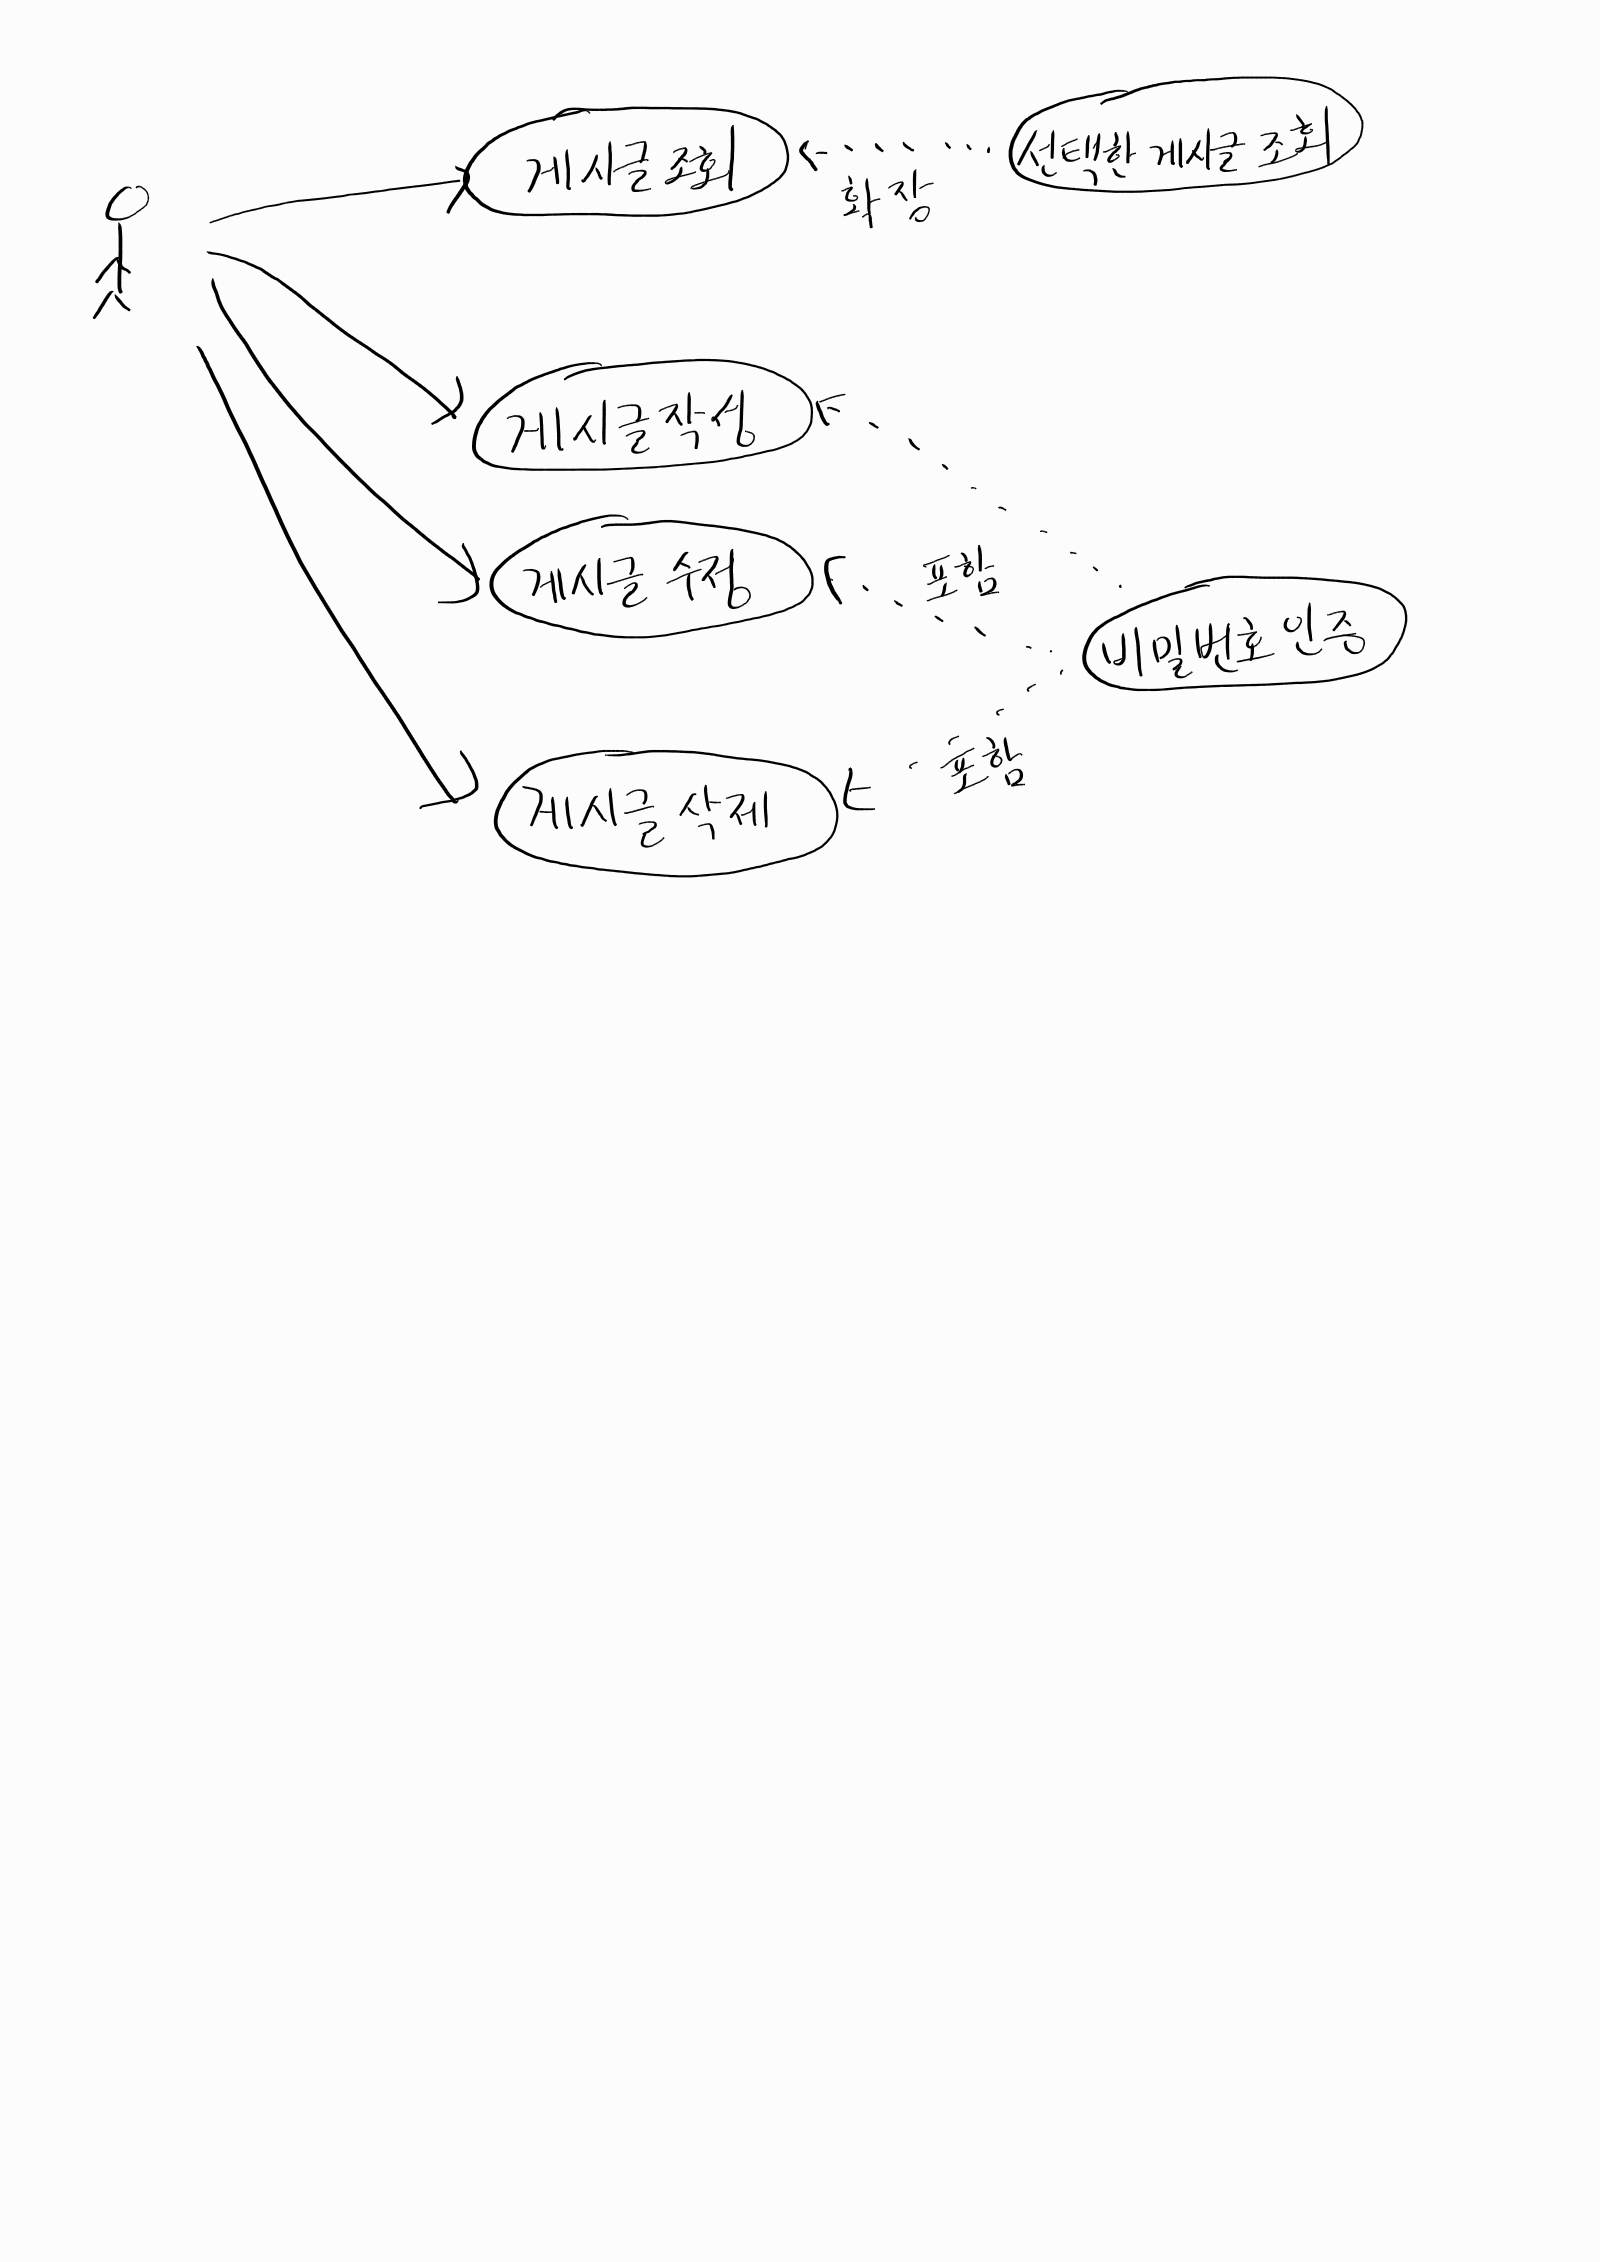 게시글 조회
선택한 게시글 조회
확장
게시글 작성
게시글 수정
포함
비밀번호 인증
포함
게시글 삭제